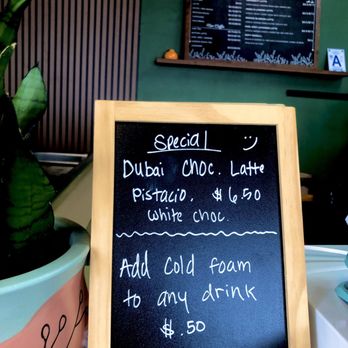 Special :)
Dubai Choc. Latte
Pistacio. $6.50
white choc.
Add Cold foam
to any drink
$.50
A